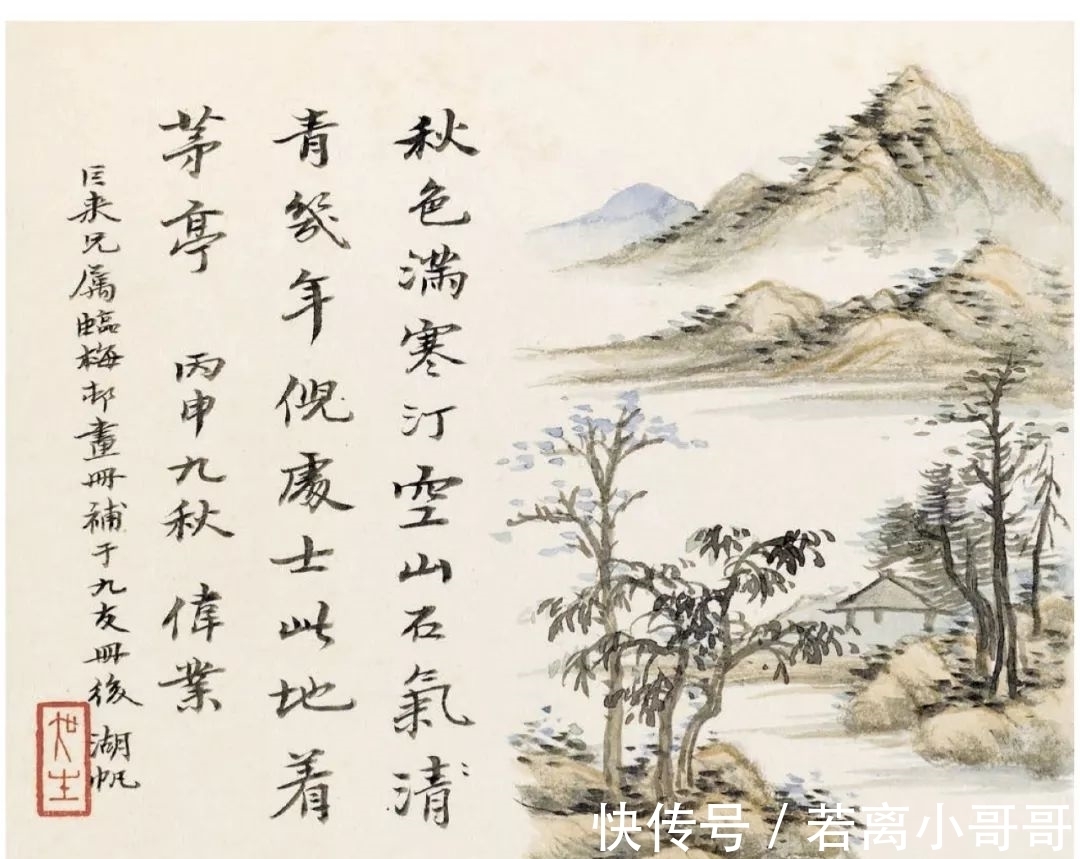 秋色滿寒汀空山石氣清
青幾年倪處士此地着
茅亭 丙申九秋 偉業
巨来兄属臨梅邨畫冊補于九友冊後 湖帆
快传号 / 若离小哥哥